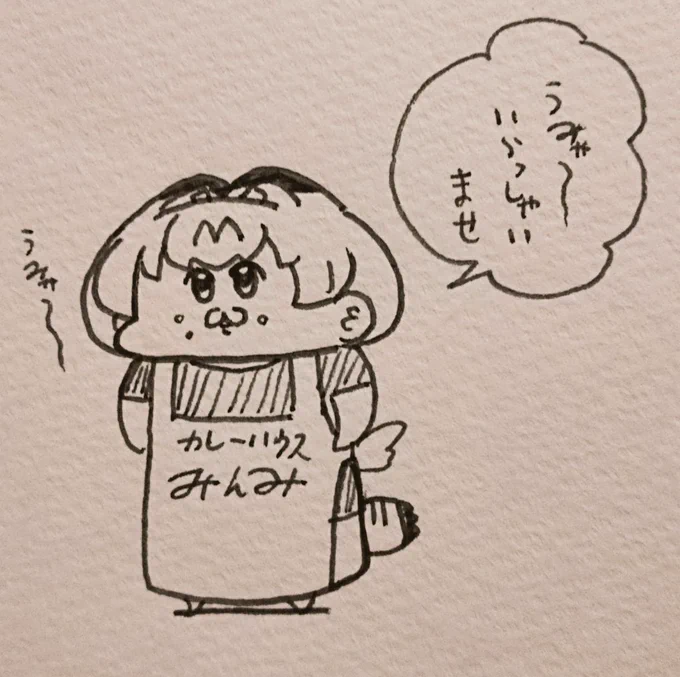 うみゃ〜
いらっしゃい
ませ
うみゃ〜
カレーハウス
みんみ